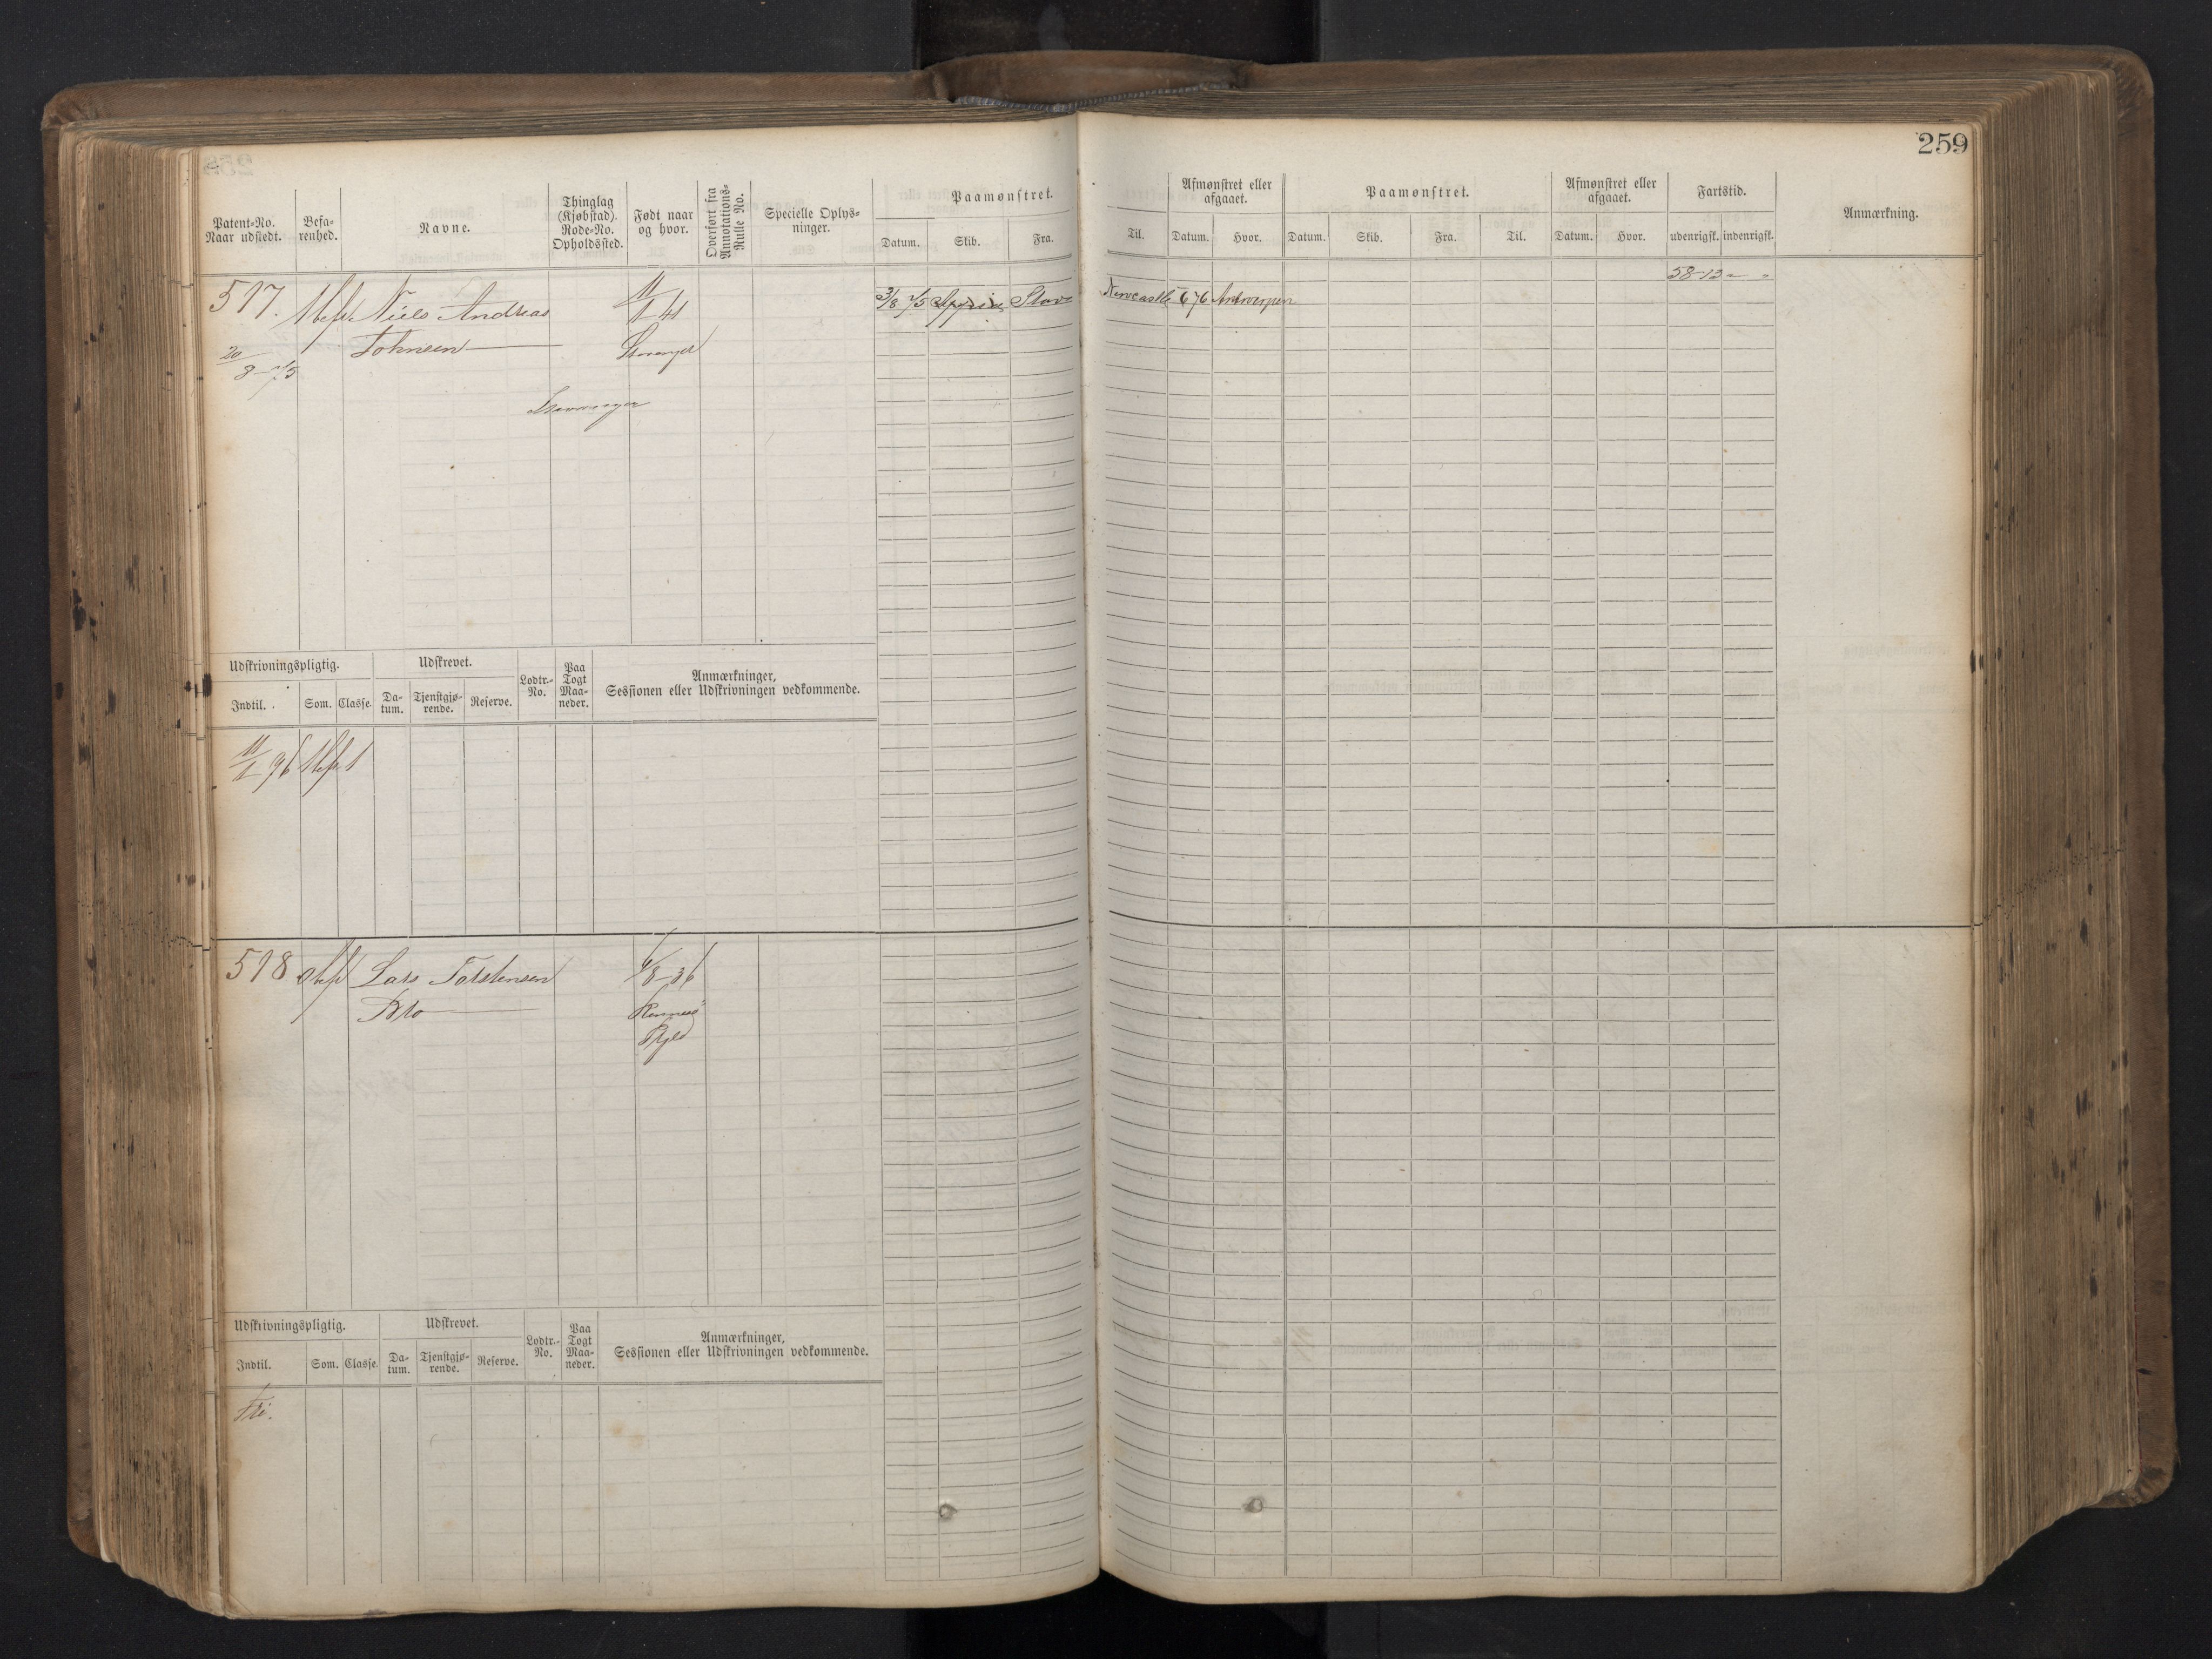 259
Patent-No. Naar udstedt.
Befarenhed.
Navne.
Thinglag (Kjøbstad). Rode-No. Opholdssted.
Født naar og hvor.
Overført fra Annotations-Rulle No.
Specielle Oplysninger.
Paamønstret.
Datum. Skib. Fra.
Til.
Afmønstret eller afgaaet.
Datum. Hvor.
Paamønstret.
Datum. Skib. Fra. Til.
Afmønstret eller afgaaet.
Datum. Hvor.
Fartstid.
udenrigsk. indenrigsk.
Anmærkning.
58-13
517. Niels Andreas 11/1 41
3/8 75 Stav Newcastle 6/76 Antwerpen
20/8-75 Johnsen Stavanger
Stavanger
Udskrivningspligtig.
Udskrevet.
Lodtr.-No.
Paa Togt Maaneder.
Anmærkninger, Sessionen eller Udskrivningen vedkommende.
Indtil. Som. Classe.
Datum. Tjenstgjørende. Reserve.
11/1 96 1
518 Lars Torstensen 6/8-36
Bro Rennesø
Pgld
Udskrivningspligtig.
Udskrevet.
Lodtr.-No.
Paa Togt Maaneder.
Anmærkninger, Sessionen eller Udskrivningen vedkommende.
Indtil. Som. Classe.
Datum. Tjenstgjørende. Reserve.
Fri.